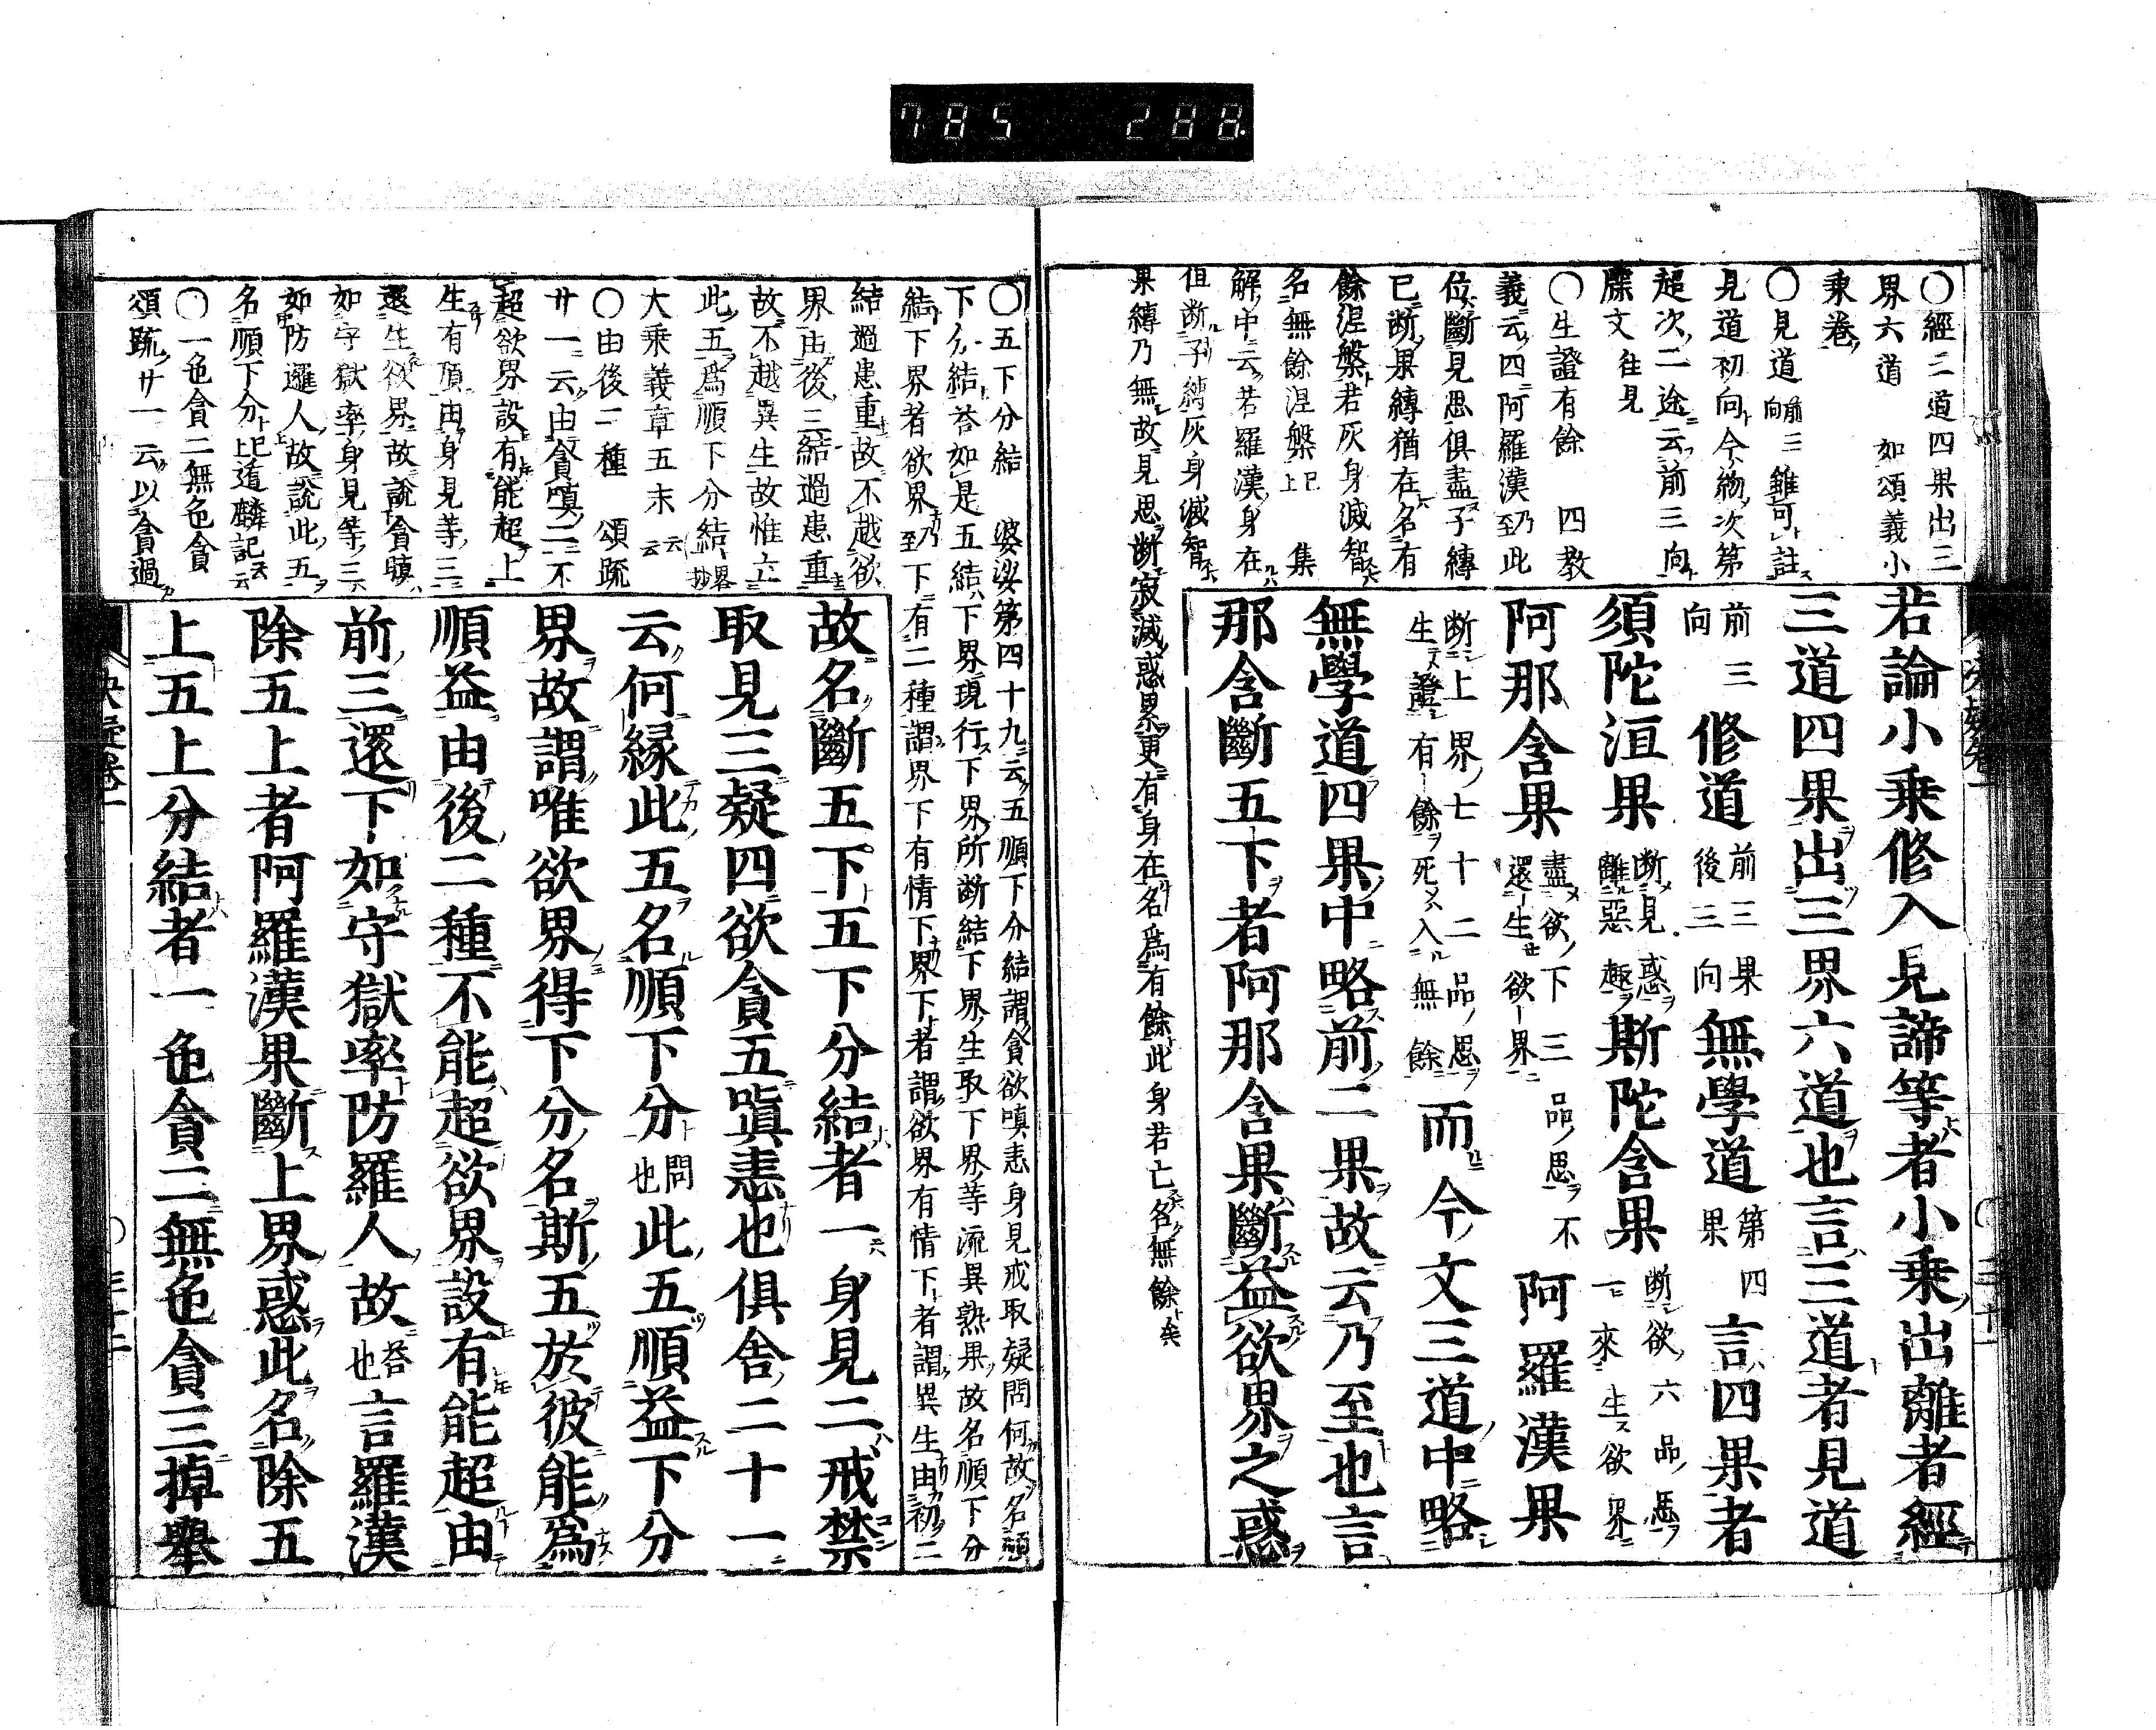 785 288
〇經三道四果出三
界六道 如頌義小
乗卷
〇見道前三向 雖可註
見道初向今総次第
超次二途云前三向
牒文往見
〇生證有餘 四教
義云四阿羅漢乃至此
位斷見思俱盡子縛
已断果縛猶在名有
餘涅槃若灰身滅智
名無餘涅槃已上 集
解中云若羅漢身在
但断子縛灰身滅智
果縛乃無故見思断寂滅惑累更有身在名爲有餘此身若亡名無餘矣
若論小乗修入見諦等者小乗出離者經
三道四果出三界六道也言三道者見道
前三向 修道前三果後三向 無學道第四果 言四果者
須陀洹果断見惑離惡趣 斯陀含果断欲六品思一來生欲界
阿那含果盡欲下三品思不還生欲界 阿羅漢果
断上界七十二品思生證有餘死入無餘 而今文三道中略
無學道四果中略前二果故云乃至也言
那含斷五下者阿那含果斷益欲界之惑
〇五下分結 婆娑第四十九云五順下分結謂貪欲嗔恚身見戒取疑問何故名順
下分結答如是五結下界現行下界所断結下界生取下界等流異熟果故名順下分
結下界者欲界乃至下有二種謂界下有情下界下者謂欲界有情下者謂異生由初二
結過患重故不越欲
界由後三結過患重
故不越異生故惟立
此五爲順下分結畧抄
大乗義章五末云云
〇由後二種 頌疏
廿一云由貪嗔二不
超欲界設有能超上
生有頂由身見等三
還生欲界故說貪瞋
如守獄率身見等三
如防邏人故說此五
名順下分已上遁麟記云云
〇一色貪二無色貪
頌疏廿一云以貪過
故名斷五下五下分結者一身見二戒禁
取見三疑四欲貪五嗔恚也俱舎二十一
云何縁此五名順下分問也此五順益下分
界故謂唯欲界得下分名斯五於彼能爲
順益由後二種不能超欲界設有能超由
前三還下如守獄率防羅人故答也言羅漢
除五上者阿羅漢果斷上界惑此名除五
上五上分結者一色貪二無色貪三掉舉